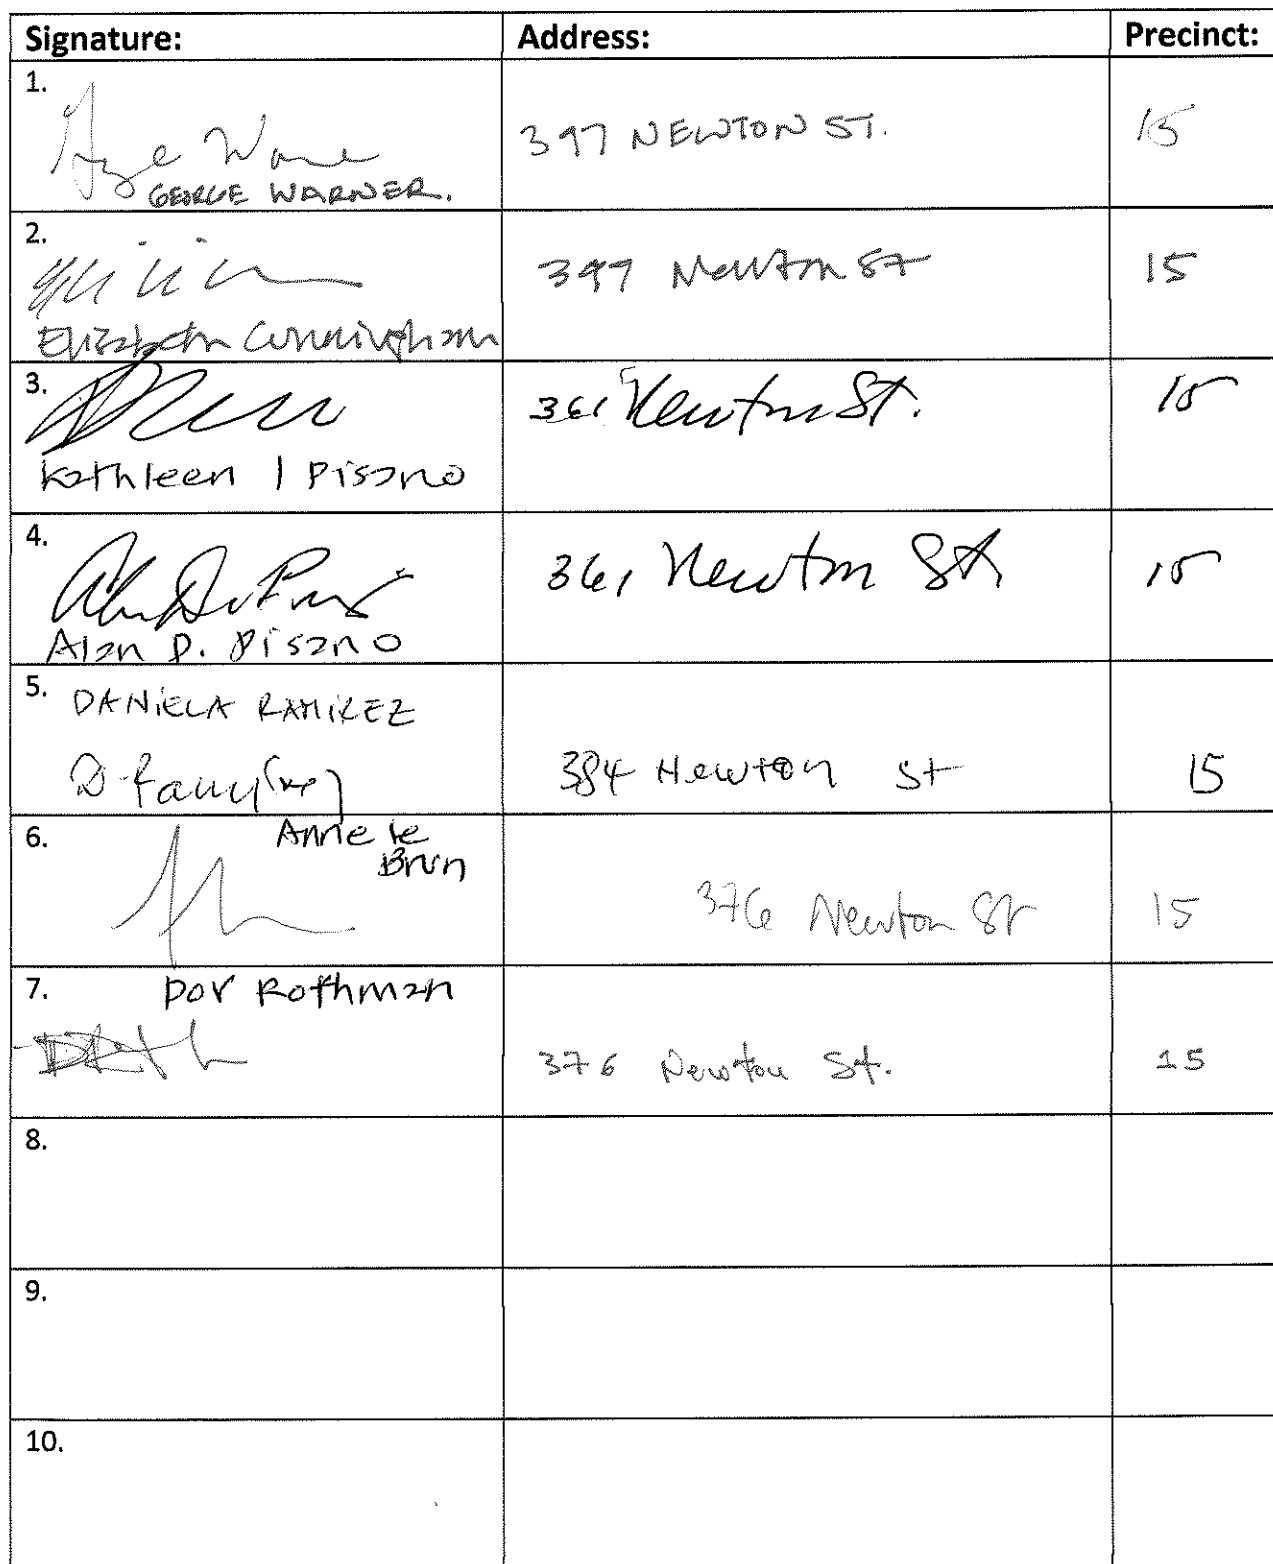 Signature: Address: Precinct:
1.
397 NEWTON ST. 15
GEORGE WARNER.
2.
397 Newton St 15
Elizabeth Cunningham
3.
361 Newton St. 15
Kathleen I Pisano
4.
361 Newton St 15
Alan D. Pisano
5. DANIELA RAMIREZ
384 Newton St 15
6. Anne le
Brun
376 Newton St 15
7. Dov Rothman
376 Newton St. 15
8.
9.
10.